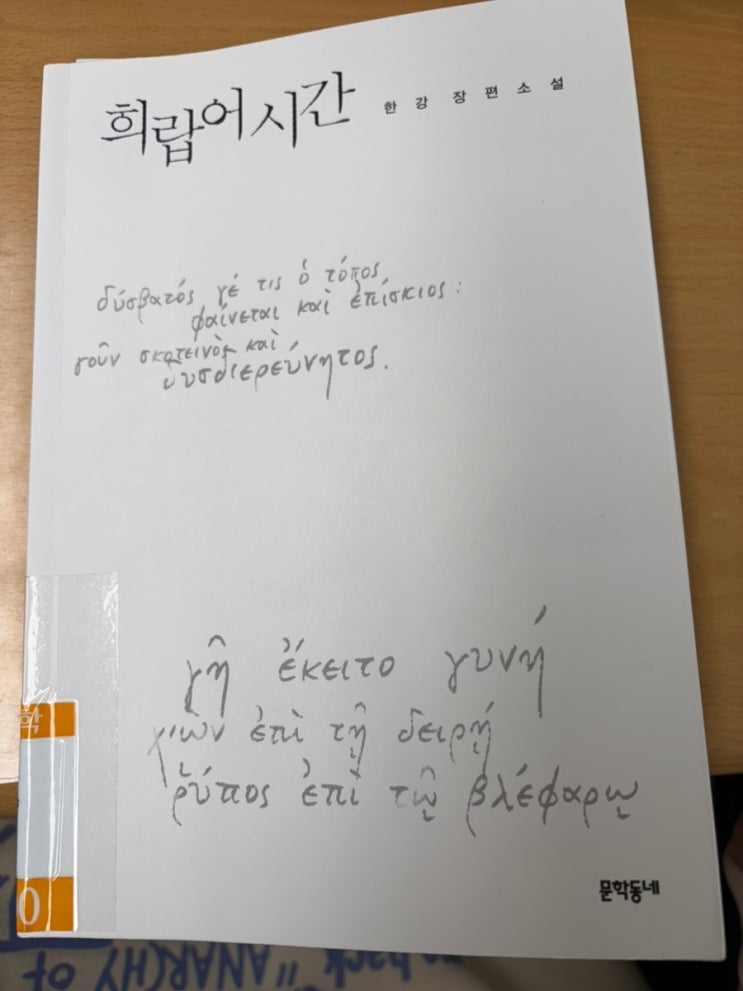 희랍어 시간
한강 장편소설
δύσβατός γέ τις ὁ τόπος
φαίνεται καὶ ἐπίσκιος :
γοῦν σκοτεινὸς καὶ
δυσδιερεύνητος.
γῆ ἔκειτο γυνή
χιὼν ἐπὶ τῇ δειρῇ
ῥύπος ἐπὶ τῷ βλέφαρῳ
문학동네
학
0
"ANARCHY OF